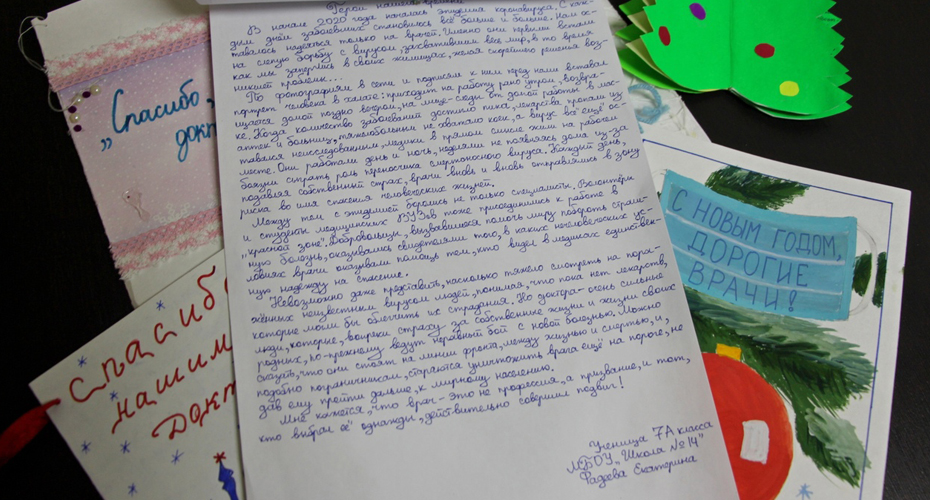 Герои нашего времени
В начале 2020 года началась эпидемия коронавируса. С каж-
дым днём заболевших становилось всё больше и больше. Нам ос-
тавалось надеяться только на врачей. Именно они первыми встали
на слепую борьбу с вирусом, захватившим весь мир, в то время
как мы заперлись в своих жилищах, желая скорейшего решения воз-
никшей проблемы...
По фотографиям в сети и подписям к ним перед нами вставал
портрет человека в халате: приходит на работу рано утром, возвра-
щается домой поздно вечером, на лице - следы от долгой работы в мас-
ке. Когда количество заболеваний достигло пика, лекарства пропали из
аптек и больниц, тяжелобольным не хватало коек, а вирус всё ещё ос-
тавался неисследованным, медики в прямом смысле жили на рабочем
месте. Они работали день и ночь, неделями не появляясь дома из-за
боязни сыграть роль переносчика смертоносного вируса. Каждый день,
подавляя собственный страх, врачи вновь и вновь отправлялись в зону
риска во имя спасения человеческих жизней.
Между тем с эпидемией боролись не только специалисты. Волонтёры
и студенты медицинских ВУЗов тоже присоединились к работе в
"красной зоне". Добровольцы, вызвавшиеся помочь миру побороть страш-
ную болезнь, оказывались свидетелями того, в каких нечеловеческих ус-
ловиях врачи оказывали помощь тем, кто видел в медиках единствен-
ную надежду на спасение.
Невозможно даже представить, насколько тяжело смотреть на пора-
жённых неизвестным вирусом людей, понимая, что пока нет лекарств,
которые могли бы облегчить их страдания. Но доктора - очень сильные
люди, которые, вопреки страху за собственные жизни и жизни своих
родных, по-прежнему ведут неравный бой с новой болезнью. Можно
сказать, что они стоят на линии фронта, между жизнью и смертью, и,
подобно пограничникам, стараются уничтожить врага ещё на пороге, не
дав ему пройти дальше, к мирному населению.
Мне кажется, что врач - это не профессия, а призвание, и тот,
кто выбрал её однажды, действительно совершил подвиг!
Ученица 7А класса
МБОУ "Школа №14"
Фадеева Екатерина
"Спасибо,
докт
Спасибо
нашим
Докт
С НОВЫМ ГОДОМ,
ДОРОГИЕ
ВРАЧИ!